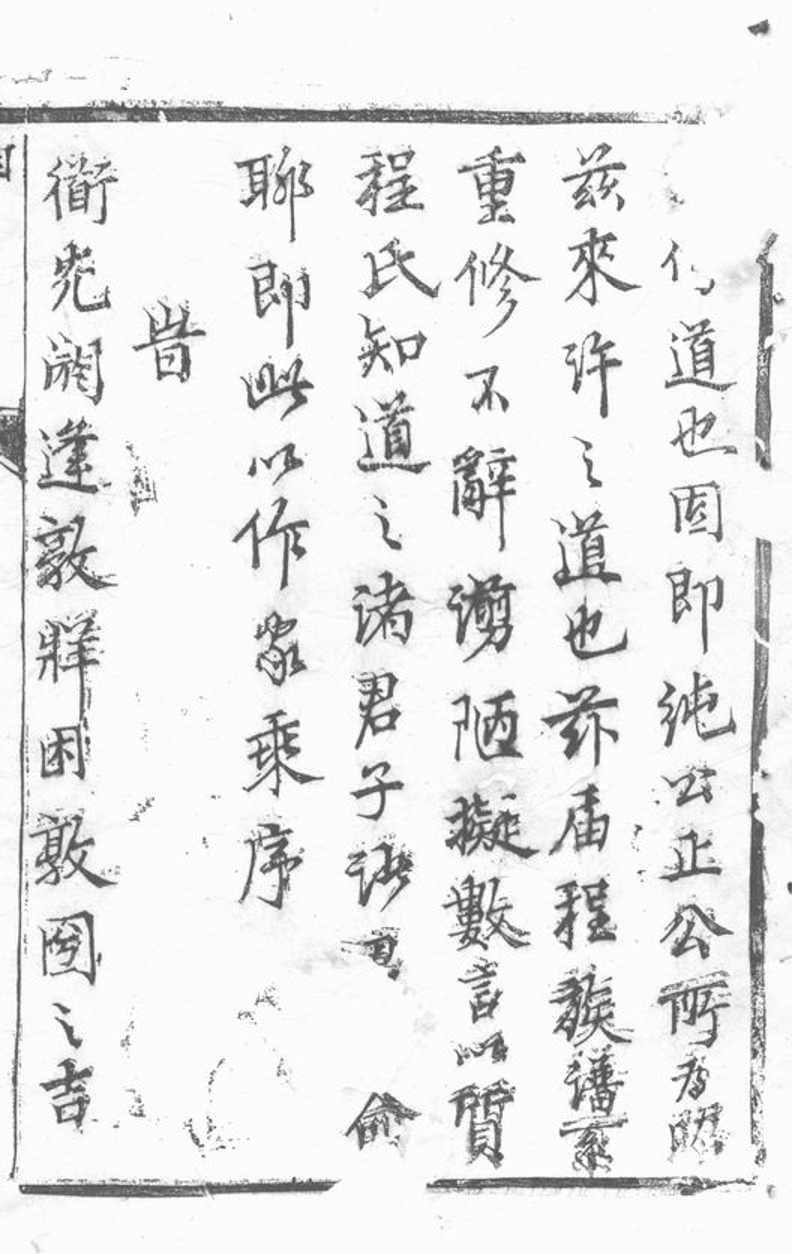 道也因即純公正公所為昭
茲來許之道也茲届程族譜系
重修不辭謭陋擬數言以質
程氏知道之諸君子 僉
聊即此以作家乘序
旹
衜光閼逢敦牂困敦之吉